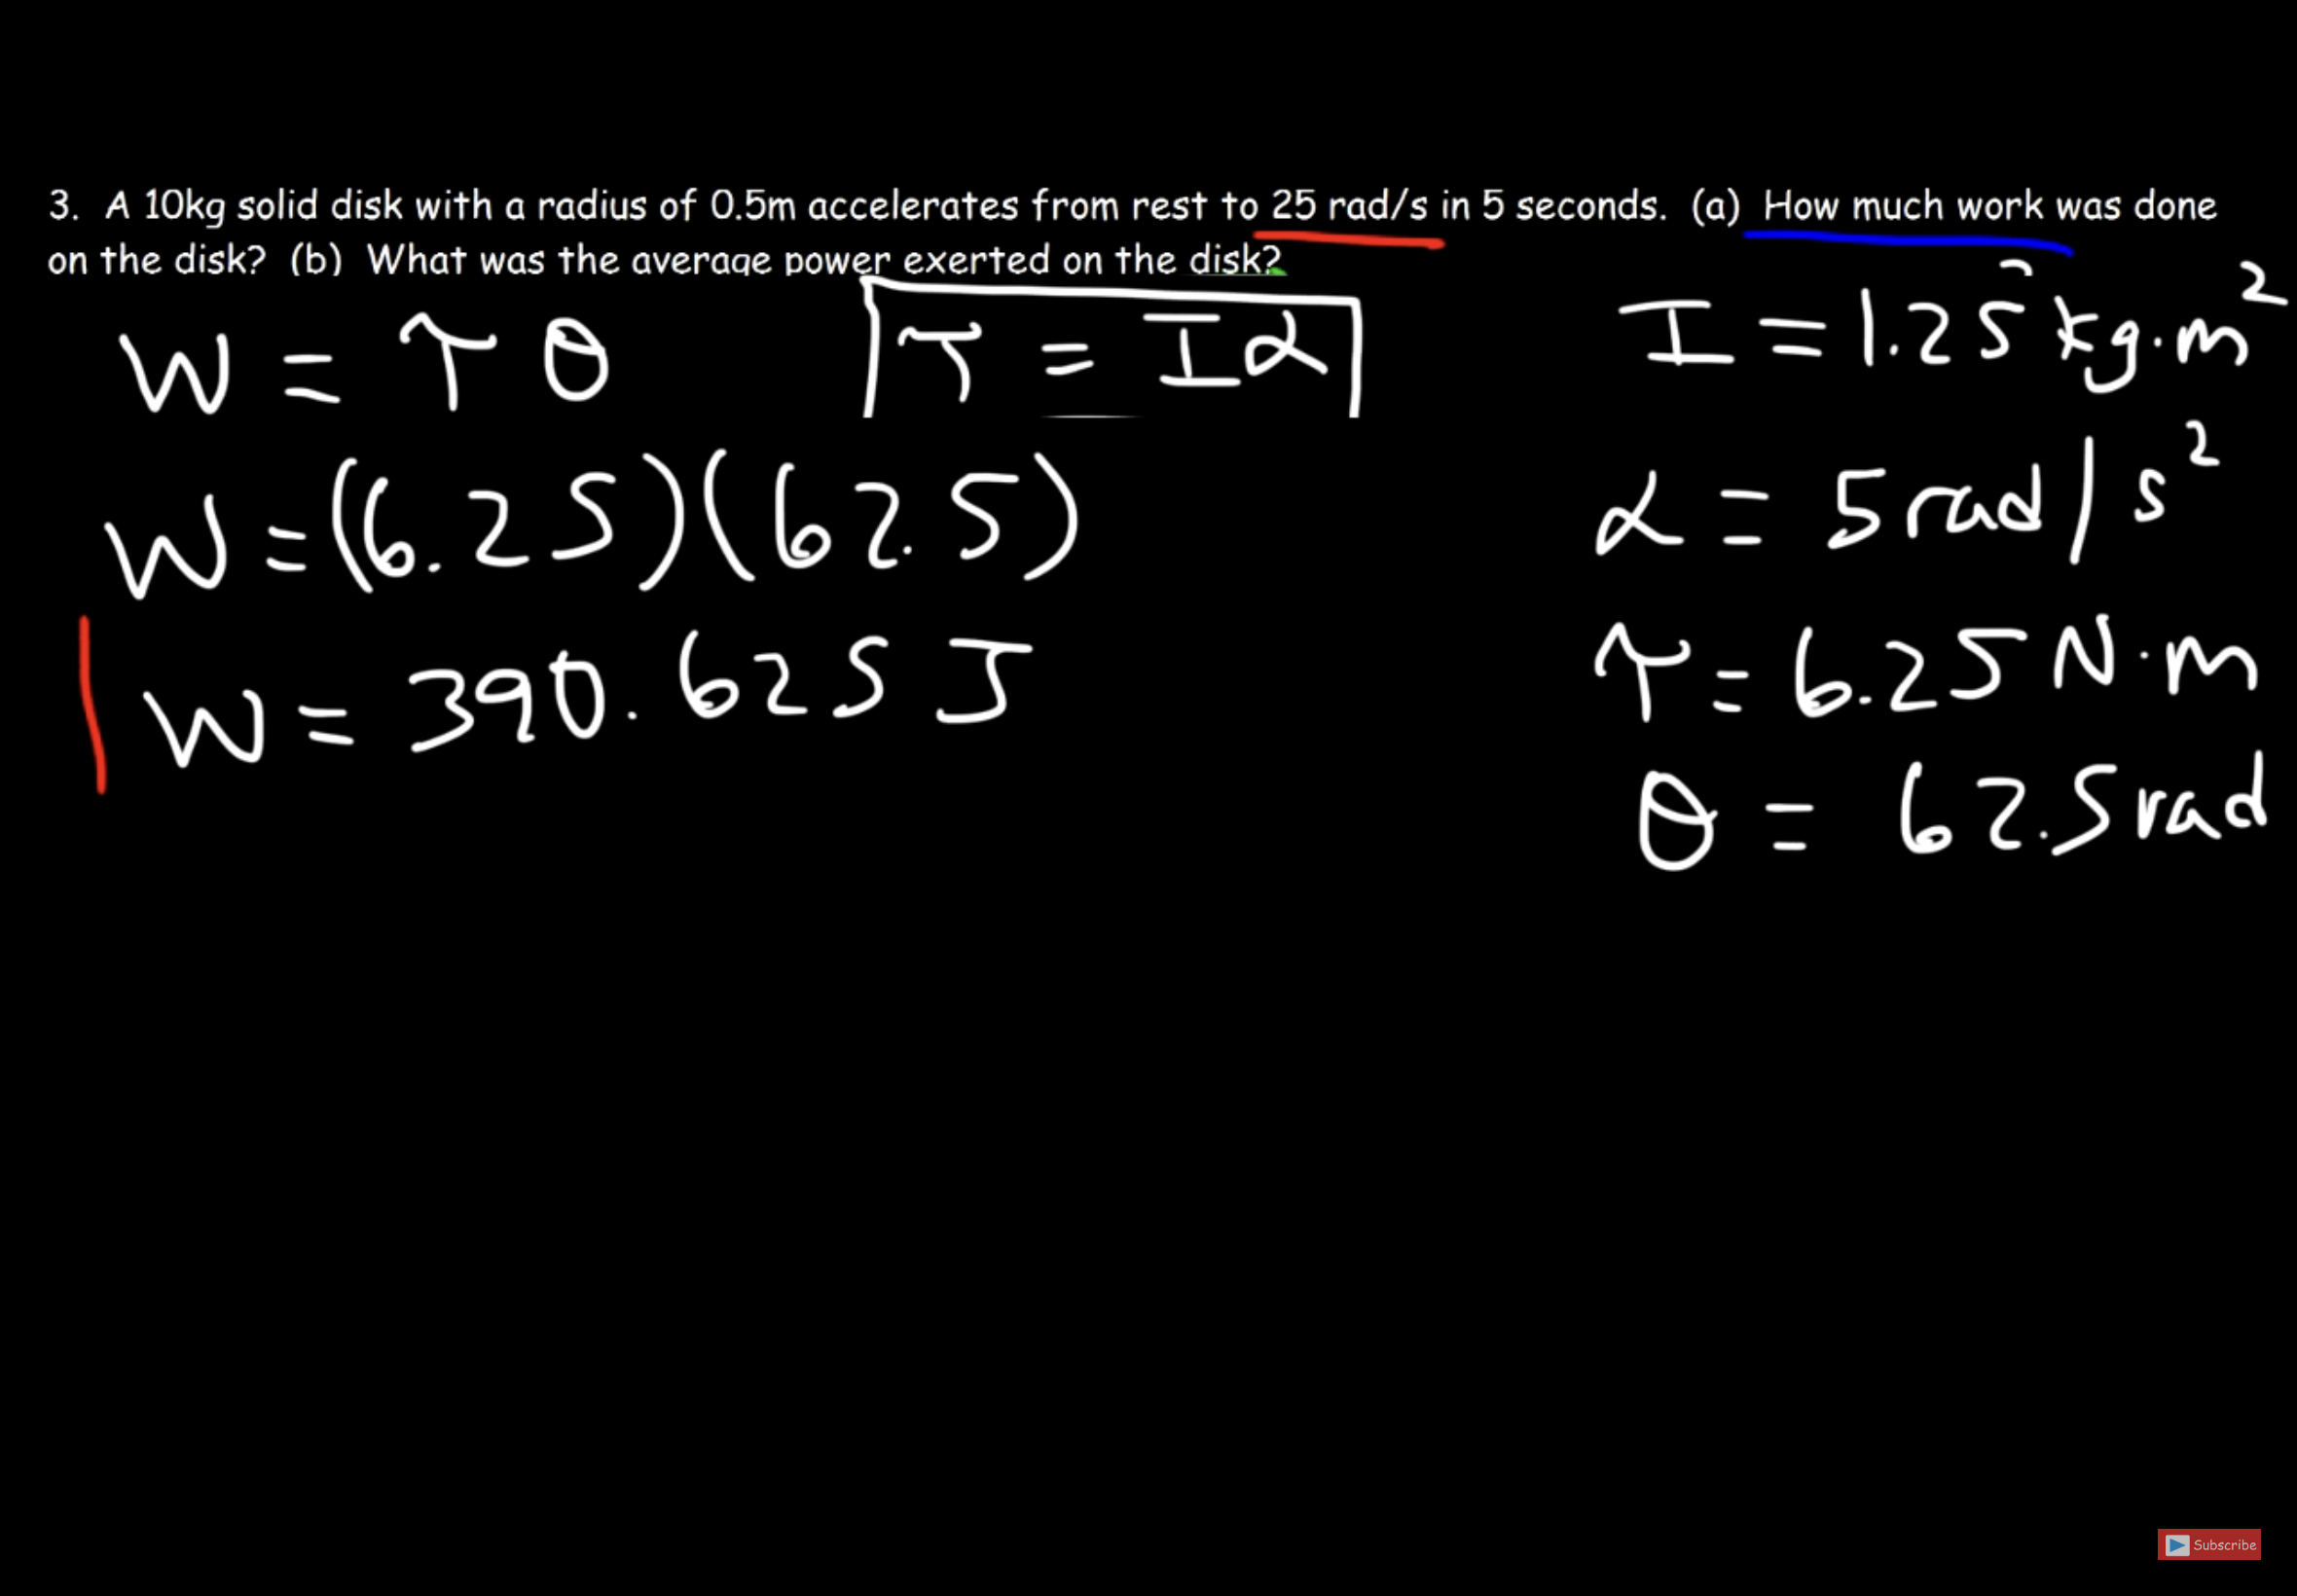 3. A 10kg solid disk with a radius of 0.5m accelerates from rest to 25 rad/s in 5 seconds. (a) How much work was done
on the disk? (b) What was the average power exerted on the disk?
W = τ θ
τ = Iα
I = 1.25 kg·m²
W = (6.25)(62.5)
α = 5 rad/s²
W = 390.625 J
τ = 6.25 N·m
θ = 62.5 rad
Subscribe